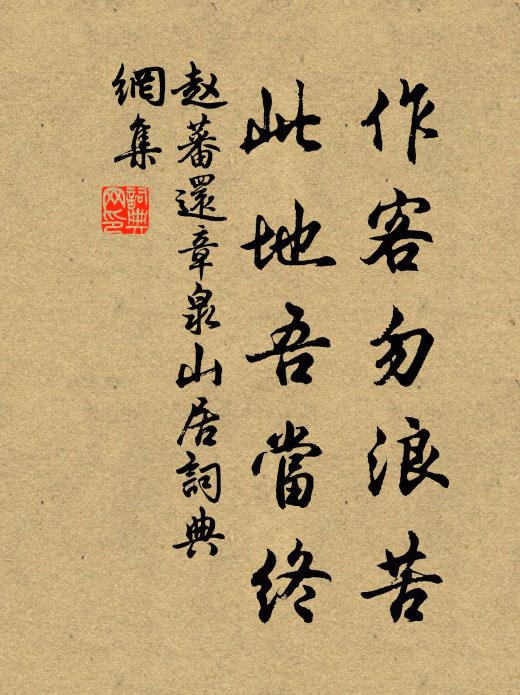 作客勿浪苦
此地吾當终
赵蕃還章泉山居詞典
網集
詞典
网印